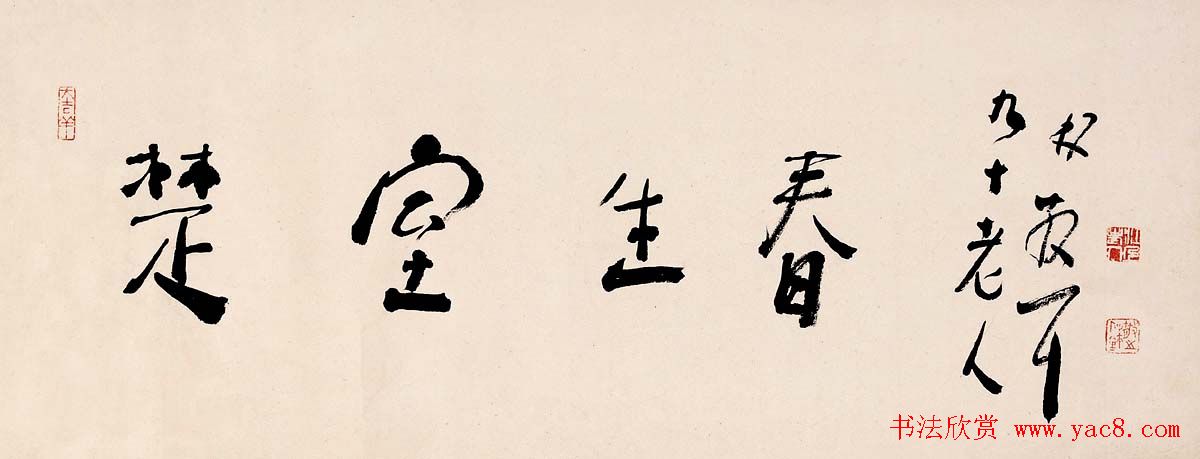 楚室生春
九十老人
林散耳
书法欣赏 www.yac8.com